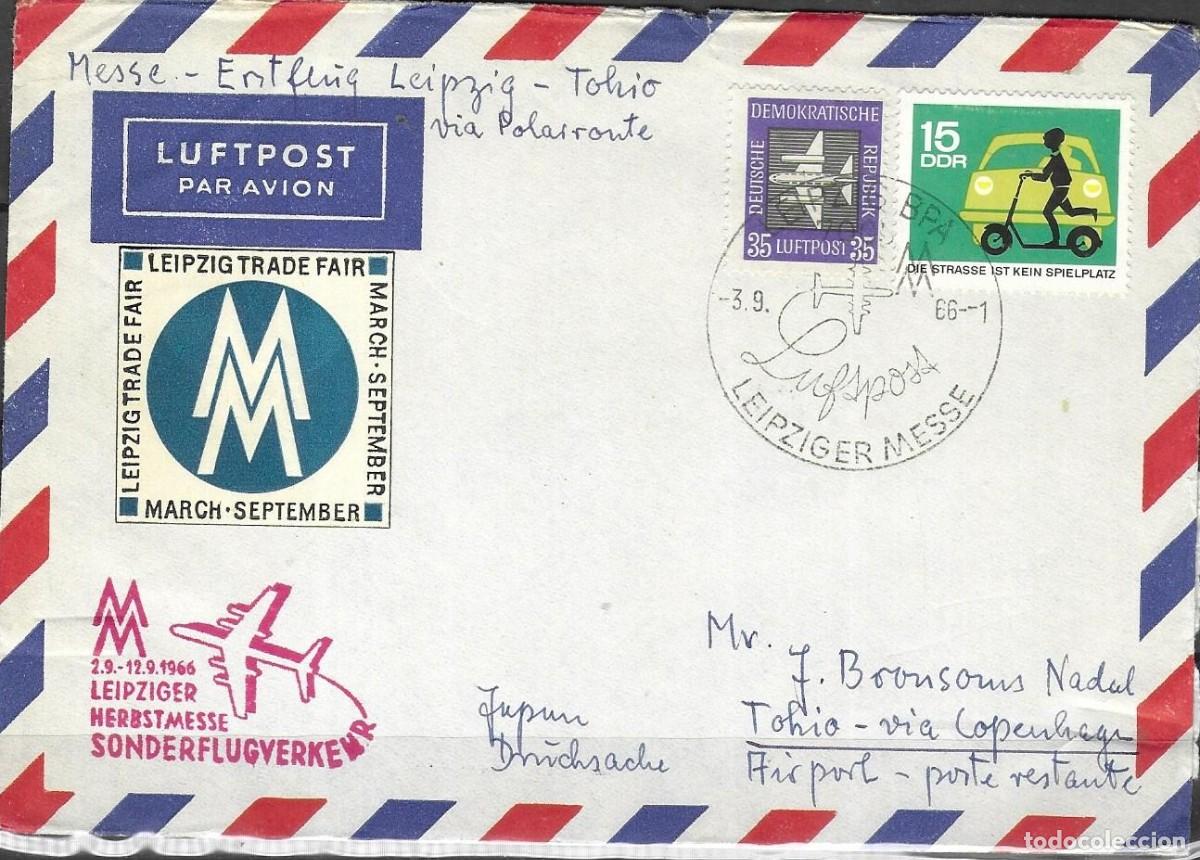 Messe - Erstflug Leipzig - Tokio
via Polarroute
LUFTPOST
PAR AVION
DEUTSCHE
DEMOKRATISCHE
REPUBLIK
35 LUFTPOST 35
15
DDR
DIE STRASSE IST KEIN SPIELPLATZ
BPA
-3.9.
66--1
Luftpost
LEIPZIGER MESSE
LEIPZIG TRADE FAIR
LEIPZIG TRADE FAIR
MARCH · SEPTEMBER
MARCH · SEPTEMBER
MM
2.9.-12.9.1966
LEIPZIGER
HERBSTMESSE
SONDERFLUGVERKEHR
Japan
Drucksache
Mr.
J. Bronsoms Nadal
Tokio - via Copenhagen
Airport - poste restante
todocoleccion